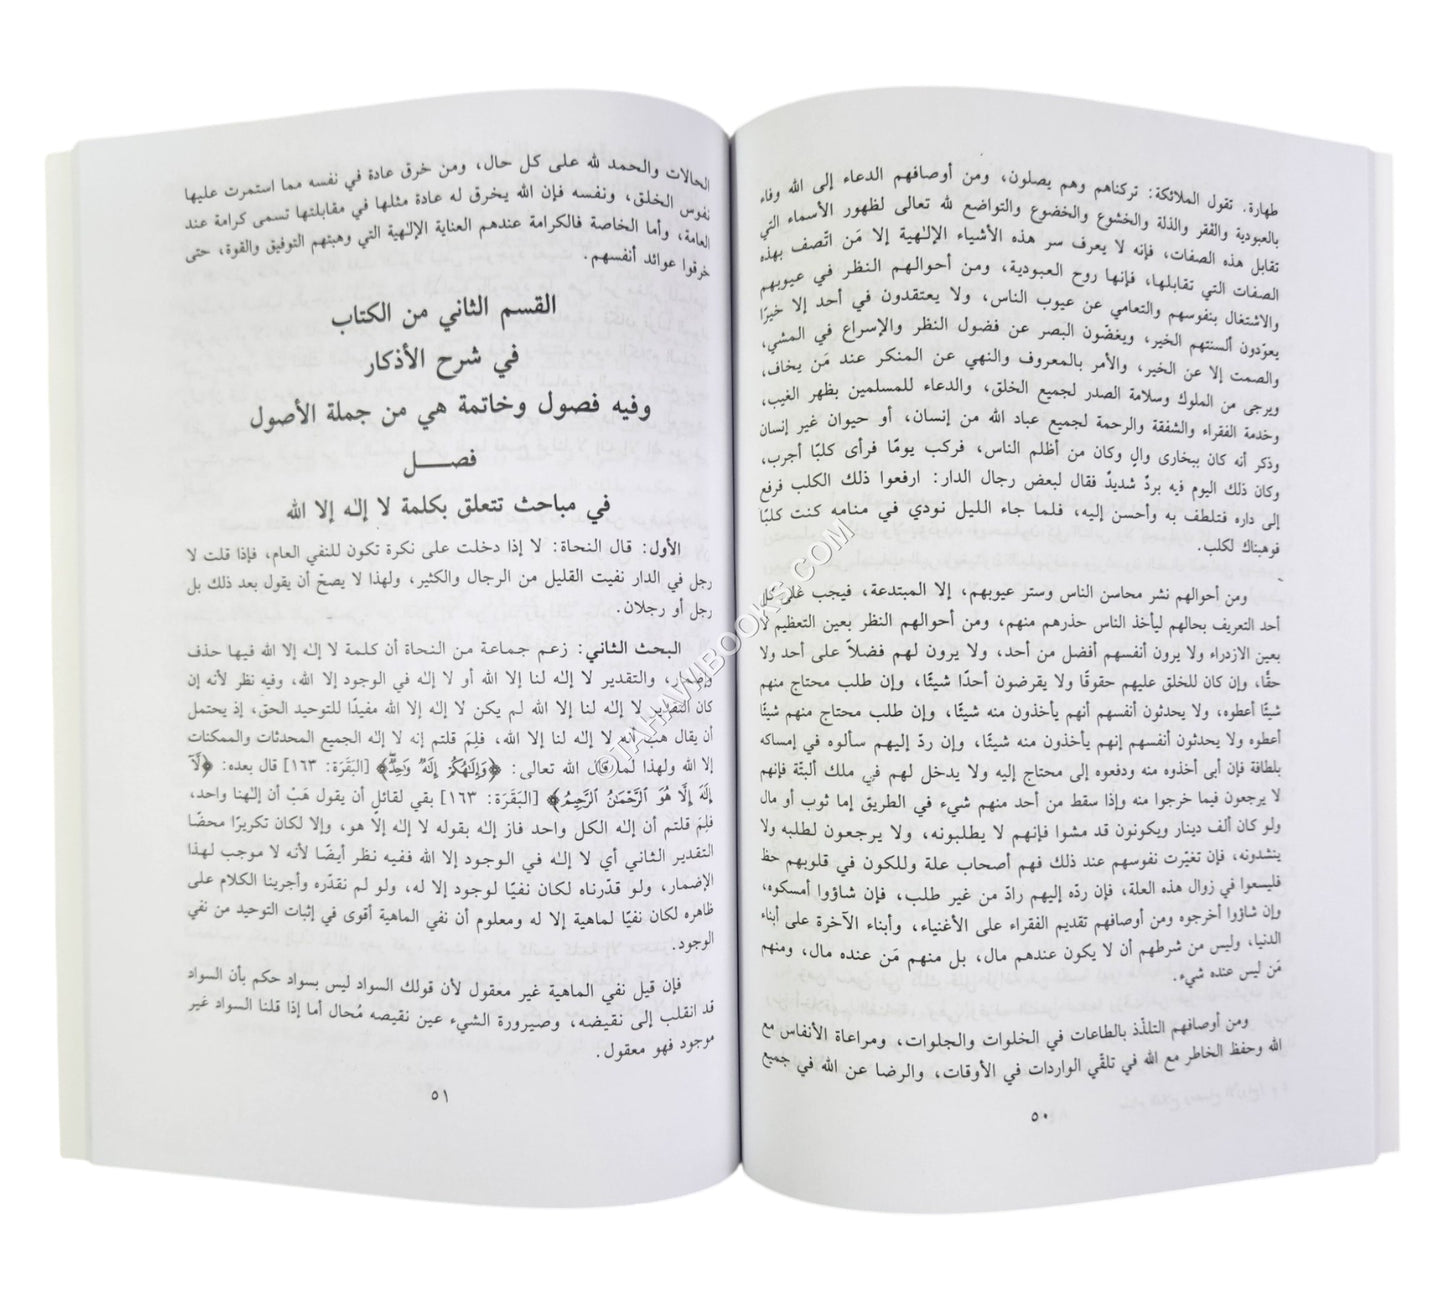 طهارة. تقول الملائكة: تركناهم وهم يصلون، ومن أوصافهم الدعاء إلى الله وفاء
بالعبودية والفقر والذلة والخشوع والخضوع والتواضع لله تعالى لظهور الأسماء التي
تقابل هذه الصفات، فإنه لا يعرف سر هذه الأشياء الإلٰهية إلا مَن اتّصف بهذه
الصفات التي تقابلها، فإنها روح العبودية، ومن أحوالهم النظر في عيوبهم
والاشتغال بنفوسهم والتعامي عن عيوب الناس، ولا يعتقدون في أحد إلا خيرًا
يعوّدون ألسنتهم الخير، ويغضّون البصر عن فضول النظر والإسراع في المشي،
والصمت إلا عن الخير، والأمر بالمعروف والنهي عن المنكر عند مَن يخاف،
ويرجى من الملوك وسلامة الصدر لجميع الخلق، والدعاء للمسلمين بظهر الغيب،
وخدمة الفقراء والشفقة والرحمة لجميع عباد الله من إنسان، أو حيوان غير إنسان
وذكر أنه كان ببخارى والٍ وكان من أظلم الناس، فركب يومًا فرأى كلبًا أجرب،
وكان ذلك اليوم فيه بردٌ شديدٌ فقال لبعض رجال الدار: ارفعوا ذلك الكلب فرفع
إلى داره فتلطف به وأحسن إليه، فلما جاء الليل نودي في منامه كنت كلبًا
فوهبناك لكلب.
ومن أحوالهم نشر محاسن الناس وستر عيوبهم، إلا المبتدعة، فيجب على كل
أحد التعريف بحالهم ليأخذ الناس حذرهم منهم، ومن أحوالهم النظر بعين التعظيم لا
بعين الازدراء ولا يرون أنفسهم أفضل من أحد، ولا يرون لهم فضلاً على أحد ولا
حقًا، وإن كان للخلق عليهم حقوقًا ولا يقرضون أحدًا شيئًا، وإن طلب محتاج منهم
شيئًا أعطوه، ولا يحدثون أنفسهم أنهم يأخذون منه شيئًا، وإن طلب محتاج منهم شيئًا
أعطوه ولا يحدثون أنفسهم إنهم يأخذون منه شيئًا، وإن ردّ إليهم سألوه في إمساكه
بلطافة فإن أبى أخذوه منه ودفعوه إلى محتاج إليه ولا يدخل لهم في ملك ألبتّة فإنهم
لا يرجعون فيما خرجوا منه وإذا سقط من أحد منهم شيء في الطريق إما ثوب أو مال
ولو كان ألف دينار ويكونون قد مشوا فإنهم لا يطلبونه، ولا يرجعون لطلبه ولا
ينشدونه، فإن تغيّرت نفوسهم عند ذلك فهم أصحاب علة وللكون في قلوبهم حظ
فليسعوا في زوال هذه العلة، فإن ردّه إليهم رادّ من غير طلب، فإن شاؤوا أمسكوه،
وإن شاؤوا أخرجوه ومن أوصافهم تقديم الفقراء على الأغنياء، وأبناء الآخرة على أبناء
الدنيا، وليس من شرطهم أن لا يكون عندهم مال، بل منهم مَن عنده مال، ومنهم
مَن ليس عنده شيء.
ومن أوصافهم التلذّذ بالطاعات في الخلوات والجلوات، ومراعاة الأنفاس مع
الله وحفظ الخاطر مع الله في تلقّي الواردات في الأوقات، والرضا عن الله في جميع
٥٠
الحالات والحمد لله على كل حال، ومن خرق عادة في نفسه مما استمرت عليها
نفوس الخلق، ونفسه فإن الله يخرق له عادة مثلها في مقابلتها تسمى كرامة عند
العامة، وأما الخاصة فالكرامة عندهم العناية الإلٰهية التي وهبتهم التوفيق والقوة، حتى
خرقوا عوائد أنفسهم.
القسم الثاني من الكتاب
في شرح الأذكار
وفيه فصول وخاتمة هي من جملة الأصول
فصـــل
في مباحث تتعلق بكلمة لا إلٰه إلا الله
الأول: قال النحاة: لا إذا دخلت على نكرة تكون للنفي العام، فإذا قلت لا
رجل في الدار نفيت القليل من الرجال والكثير، ولهذا لا يصحّ أن يقول بعد ذلك بل
رجل أو رجلان.
البحث الثاني: زعم جماعة من النحاة أن كلمة لا إلٰه إلا الله فيها حذف
وإضمار، والتقدير لا إلٰه لنا إلا الله أو لا إلٰه في الوجود إلا الله، وفيه نظر لأنه إن
كان التقدير لا إلٰه لنا إلا الله لم يكن لا إلٰه إلا الله مفيدًا للتوحيد الحق، إذ يحتمل
أن يقال هب أنه لا إلٰه لنا إلا الله، فلِمَ قلتم إنه لا إلٰه الجميع المحدثات والممكنات
إلا الله ولهذا لما قال الله تعالى: ﴿وَإِلَٰهُكُمْ إِلَٰهٌ وَٰحِدٌ﴾ [البَقَرَة: ١٦٣] قال بعده: ﴿لَّآ
إِلَٰهَ إِلَّا هُوَ ٱلرَّحْمَٰنُ ٱلرَّحِيمُ﴾ [البَقَرَة: ١٦٣] بقي لقائلٍ أن يقول هَبْ أن إلٰهنا واحد،
فلِمَ قلتم أن إلٰه الكل واحد فاز إلٰه بقوله لا إلٰه إلّا هو، وإلا لكان تكريرًا محضًا
التقدير الثاني أي لا إلٰه في الوجود إلا الله ففيه نظر أيضًا لأنه لا موجب لهذا
الإضمار، ولو قدّرناه لكان نفيًا لوجود إلا له، ولو لم نقدّره وأجرينا الكلام على
ظاهره لكان نفيًا لماهية إلا له ومعلوم أن نفي الماهية أقوى في إثبات التوحيد من نفي
الوجود.
فإن قيل نفي الماهية غير معقول لأن قولك السواد ليس بسواد حكم بأن السواد
قد انقلب إلى نقيضه، وصيرورة الشيء عين نقيضه مُحال أما إذا قلنا السواد غير
موجود فهو معقول.
٥١
TAHAWIBOOKS.COM